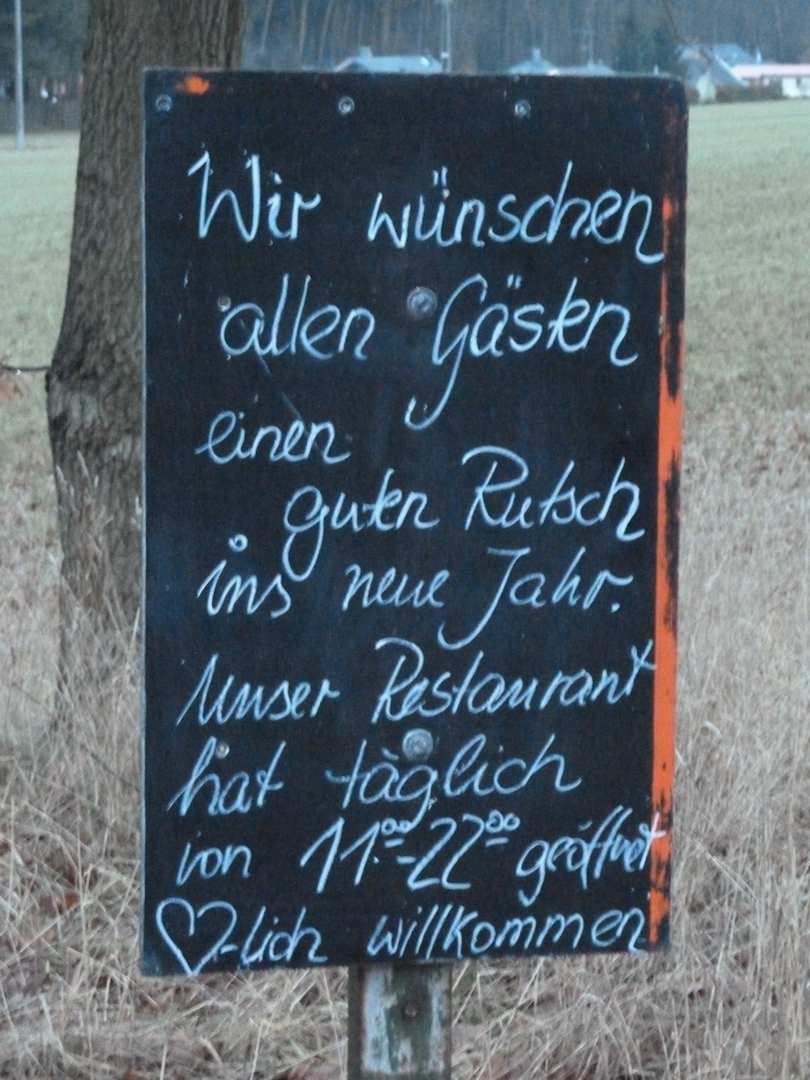 Wir wünschen
allen Gästen
einen
guten Rutsch
ins neue Jahr.
Unser Restaurant
hat täglich
von 11⁰⁰-22⁰⁰ geöffnet
♡-lich willkommen